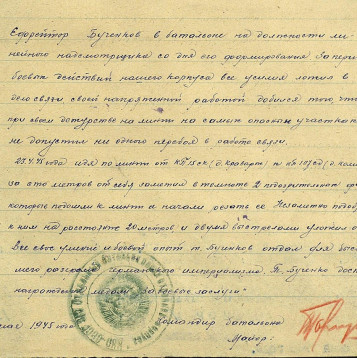 Ефрейтор Бученков в батальоне на должности ли-
нейного надсмотрщика со дня его формирования. За пери
боевых действий нашего корпуса все усилия ложил в
дело связи, своей напряженной работой добился того, что
при своем дежурстве на линии на самых опасных участках
не допустил ни одного перебоя в работе связи.
23.4.45 года идя по линии от КП 15 ск (д.
за сто метров от себя заметил в темноте 2 подозрительн
которые подошли к линии и начали резать ее. Незаметно подой
к ним на расстояние 20 метров и двумя выстрелами уложил о
Все свое умение и боевой опыт т. Бученков отдал для быс
шего разгрома германского империализма. Т. Бученко дос
награждения медали "За боевые заслуги"
мая 1945 года
Командир батальона
Майор: